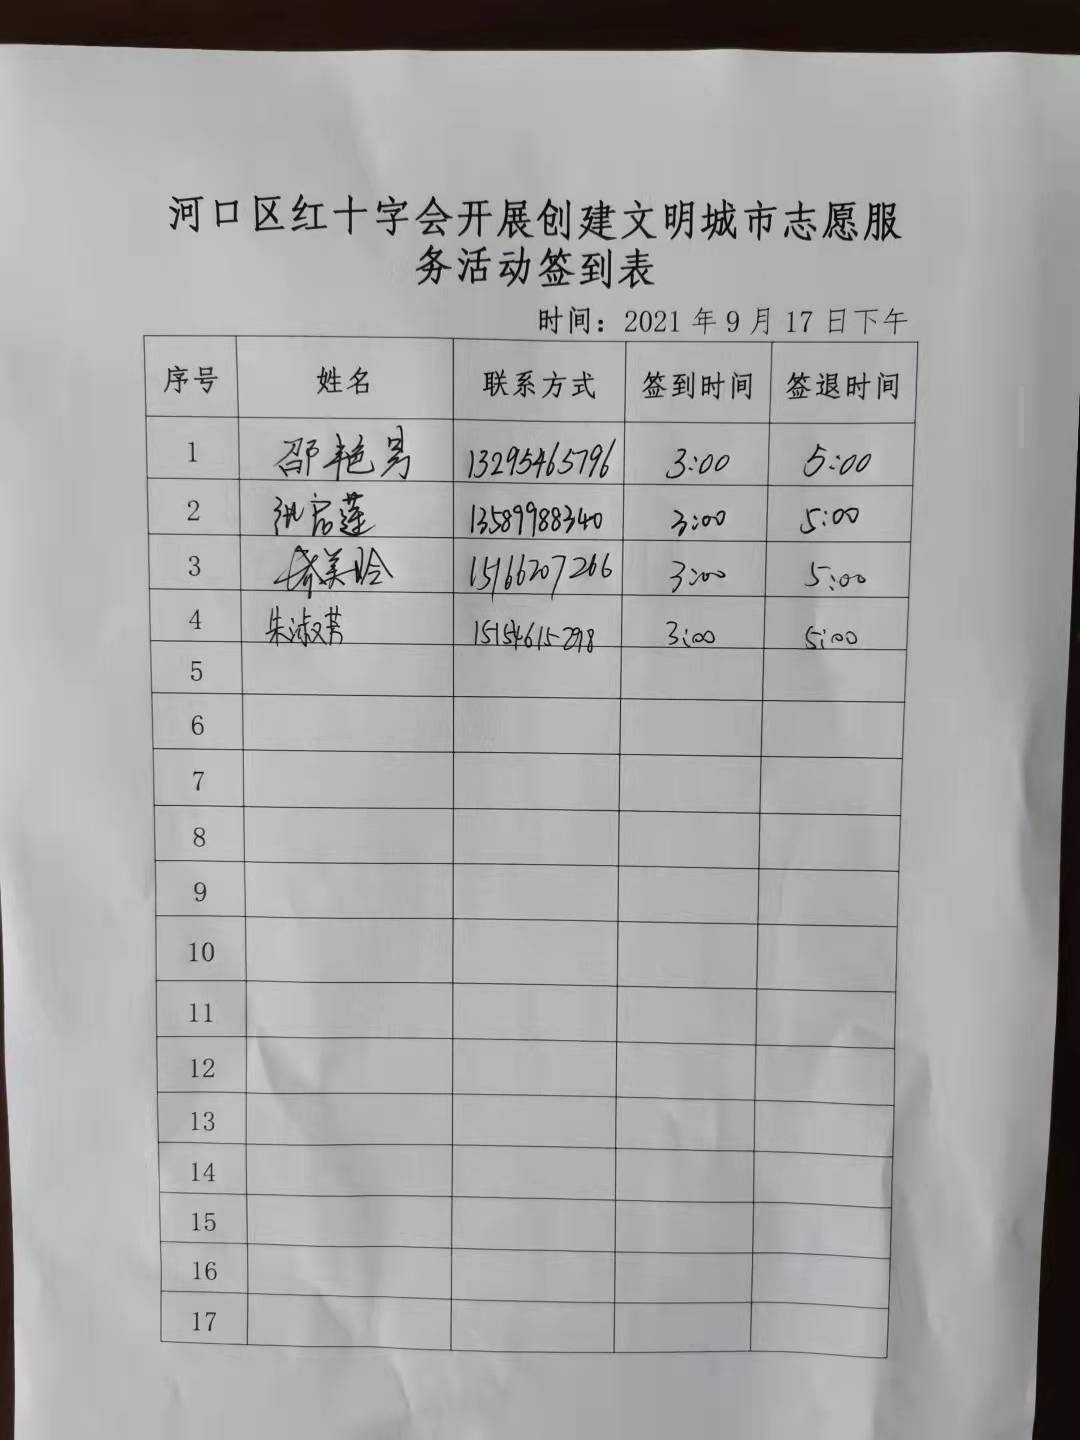 河口区红十字会开展创建文明城市志愿服
务活动签到表
时间：2021年9月17日下午
序号 姓名 联系方式 签到时间 签退时间
1 邵艳男 13295465796 3:00 5:00
2 莲 13589988340 3:00 5:00
3 美玲 15166207266 3:00 5:00
4 朱淑芳 15154615298 3:00 5:00
5
6
7
8
9
10
11
12
13
14
15
16
17